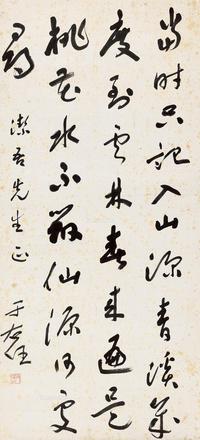 当时只记入山深青溪几
度到云林春来遍是
桃花水不辨仙源何处
寻
洁吾先生正
于右任